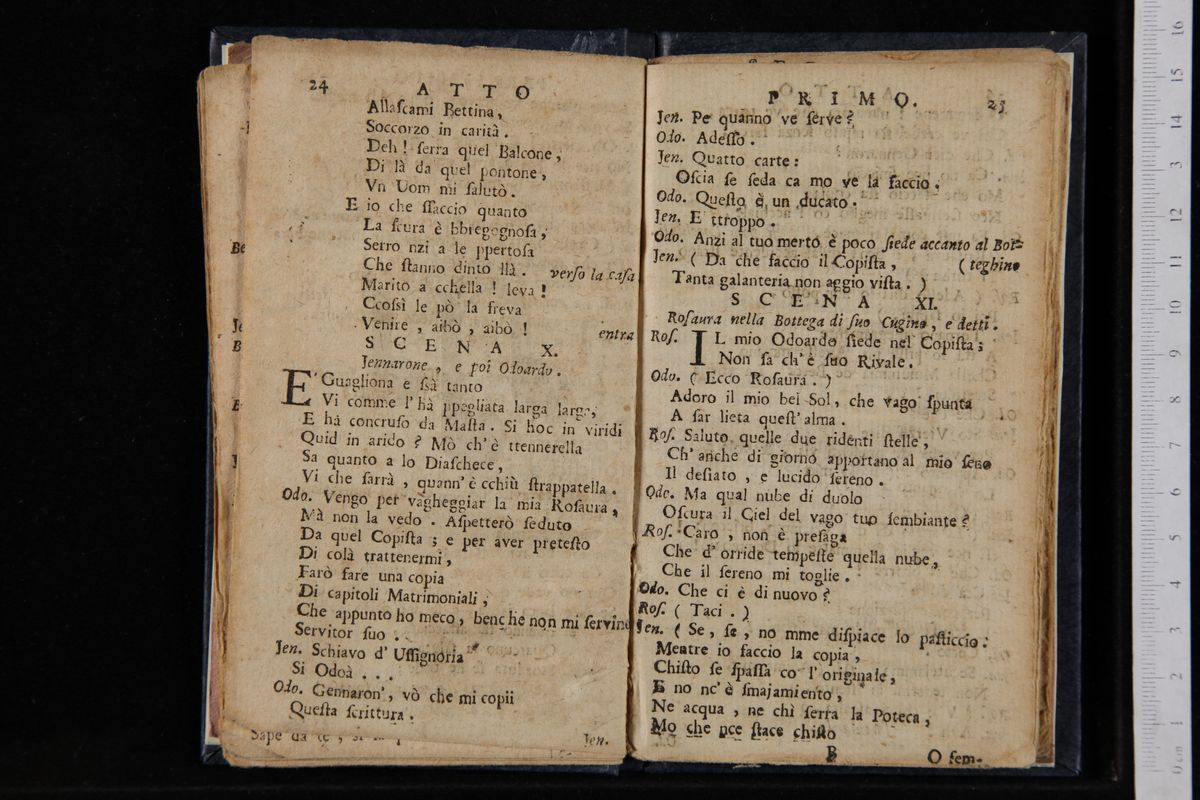 24 ATTO
Allaſcami Bettina,
Soccorzo in carità.
Deh! ſerra quel Balcone,
Di là da quel pontone,
Vn Uom mi ſalutò.
E io che ſſaccio quanto
La ſcura è bbregognoſa,
Serro nzi a le ppertoſa
Che ſtanno dinto llà. verſo la caſa
Marito a cchella! leva!
Ccoſsì le pò la freva
Venire, aibò, aibò! entra
SCENA X.
Jennarone, e poi Odoardo.
E' Guagliona e ſsà tanto
Vi comme l'hà ppegliata larga larga,
E hà concruſo da Maſta. Si hoc in viridi
Quid in arido? Mò ch'è ttennerella
Sa quanto a lo Diaſchece,
Vi che ſarrà, quann'è cchiù ſtrappatella.
Odo. Vengo per vagheggiar la mia Roſaura,
Mà non la vedo. Aſpetterò ſeduto
Da quel Copiſta; e per aver preteſto
Di colà trattenermi,
Farò fare una copia
Di capitoli Matrimoniali,
Che appunto ho meco, benche non mi ſervino
Servitor ſuo.
Jen. Schiavo d'Uſſignoria
Si Odoà...
Odo. Gennaron', vò che mi copii
Queſta ſcrittura.
Jen.
PRIMO. 25
Jen. Pe quanno ve ſerve?
Odo. Adeſſo.
Jen. Quatto carte:
Oſcia ſe ſeda ca mo ve la faccio.
Odo. Queſto è un ducato.
Jen. E ttroppo.
Odo. Anzi al tuo merto è poco ſiede accanto al Bot-
Jen. (Da che faccio il Copiſta, (teghino
Tanta galanteria non aggio viſta.)
SCENA XI.
Roſaura nella Bottega di ſuo Cugino, e detti.
Roſ. IL mio Odoardo ſiede nel Copiſta;
Non ſa ch'è ſuo Rivale.
Odo. (Ecco Roſaura.)
Adoro il mio bel Sol, che vago ſpunta
A far lieta queſt'alma.
Roſ. Saluto quelle due ridenti ſtelle,
Ch'anche di giorno apportano al mio ſeno
Il deſiato, e lucido ſereno.
Odo. Ma qual nube di duolo
Oſcura il Ciel del vago tuo ſembiante?
Roſ. Caro, non è preſaga
Che d'orride tempeſte quella nube,
Che il ſereno mi toglie.
Odo. Che ci è di nuovo?
Roſ. (Taci.)
Jen. (Se, ſe, no mme diſpiace lo paſticcio:
Mentre io faccio la copia,
Chiſto ſe ſpaſſa co l'originale,
E no nc'è ſmajamiento,
Ne acqua, ne chì ſerra la Poteca,
Mo che nce ſtace chiſto
B O ſem-